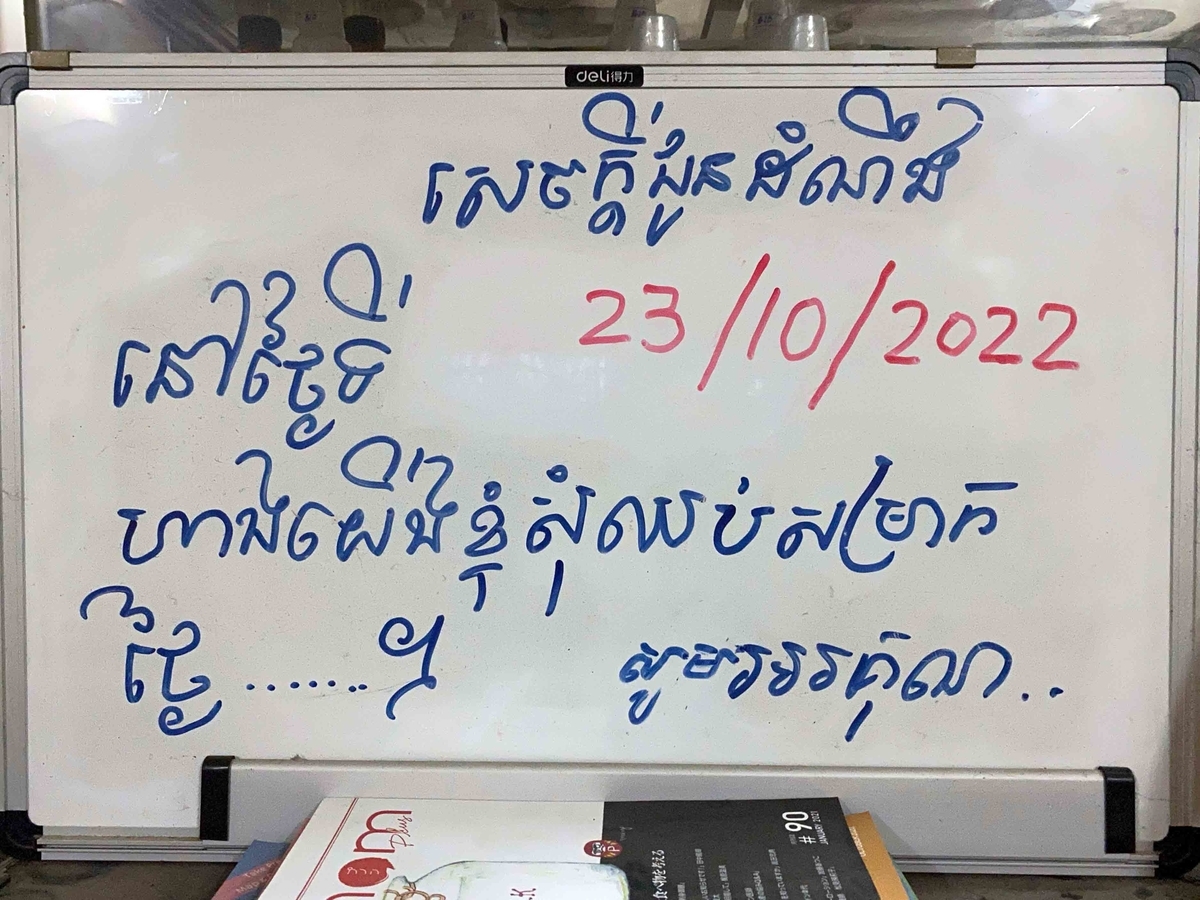 deli得力
សេចក្តីជូនដំណឹង
នៅថ្ងៃទី 23/10/2022
ហាងយើងខ្ញុំសុំឈប់សម្រាក
ថ្ងៃ.......ៗ សូមអរគុណ..
nom Plus
#90
JANUARY 2021